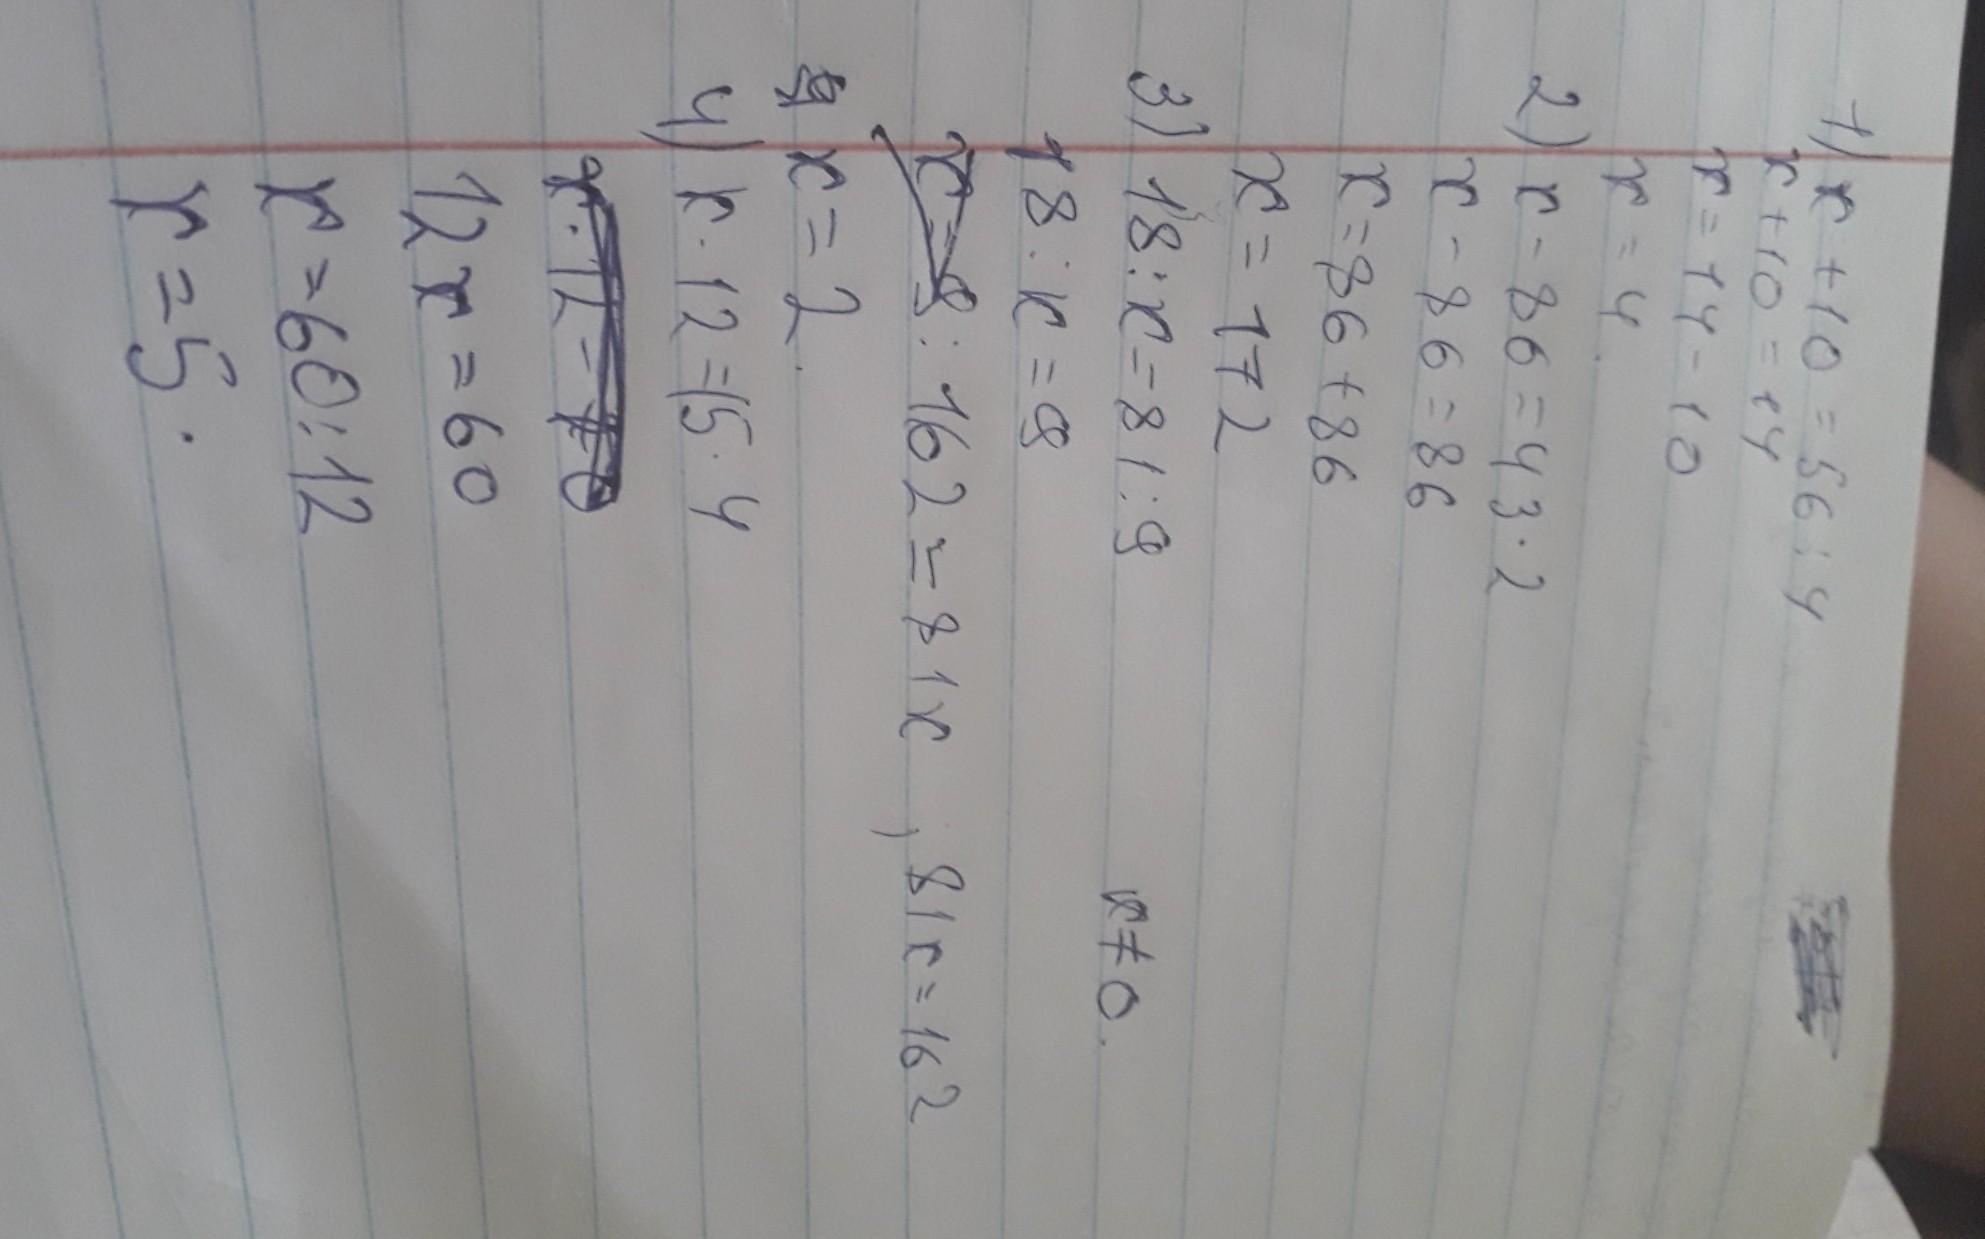 1) x + 10 = 56 : 4
x + 10 = 14
x = 14 - 10
x = 4.
2) x - 86 = 43 · 2
x - 86 = 86
x = 86 + 86
x = 172
3) 18 : x = 81 : 9 x ≠ 0.
18 : x = 9
162 = 81x , 81x = 162
x = 2.
4) x · 12 = 15 · 4
12x = 60
x = 60 : 12
x = 5.